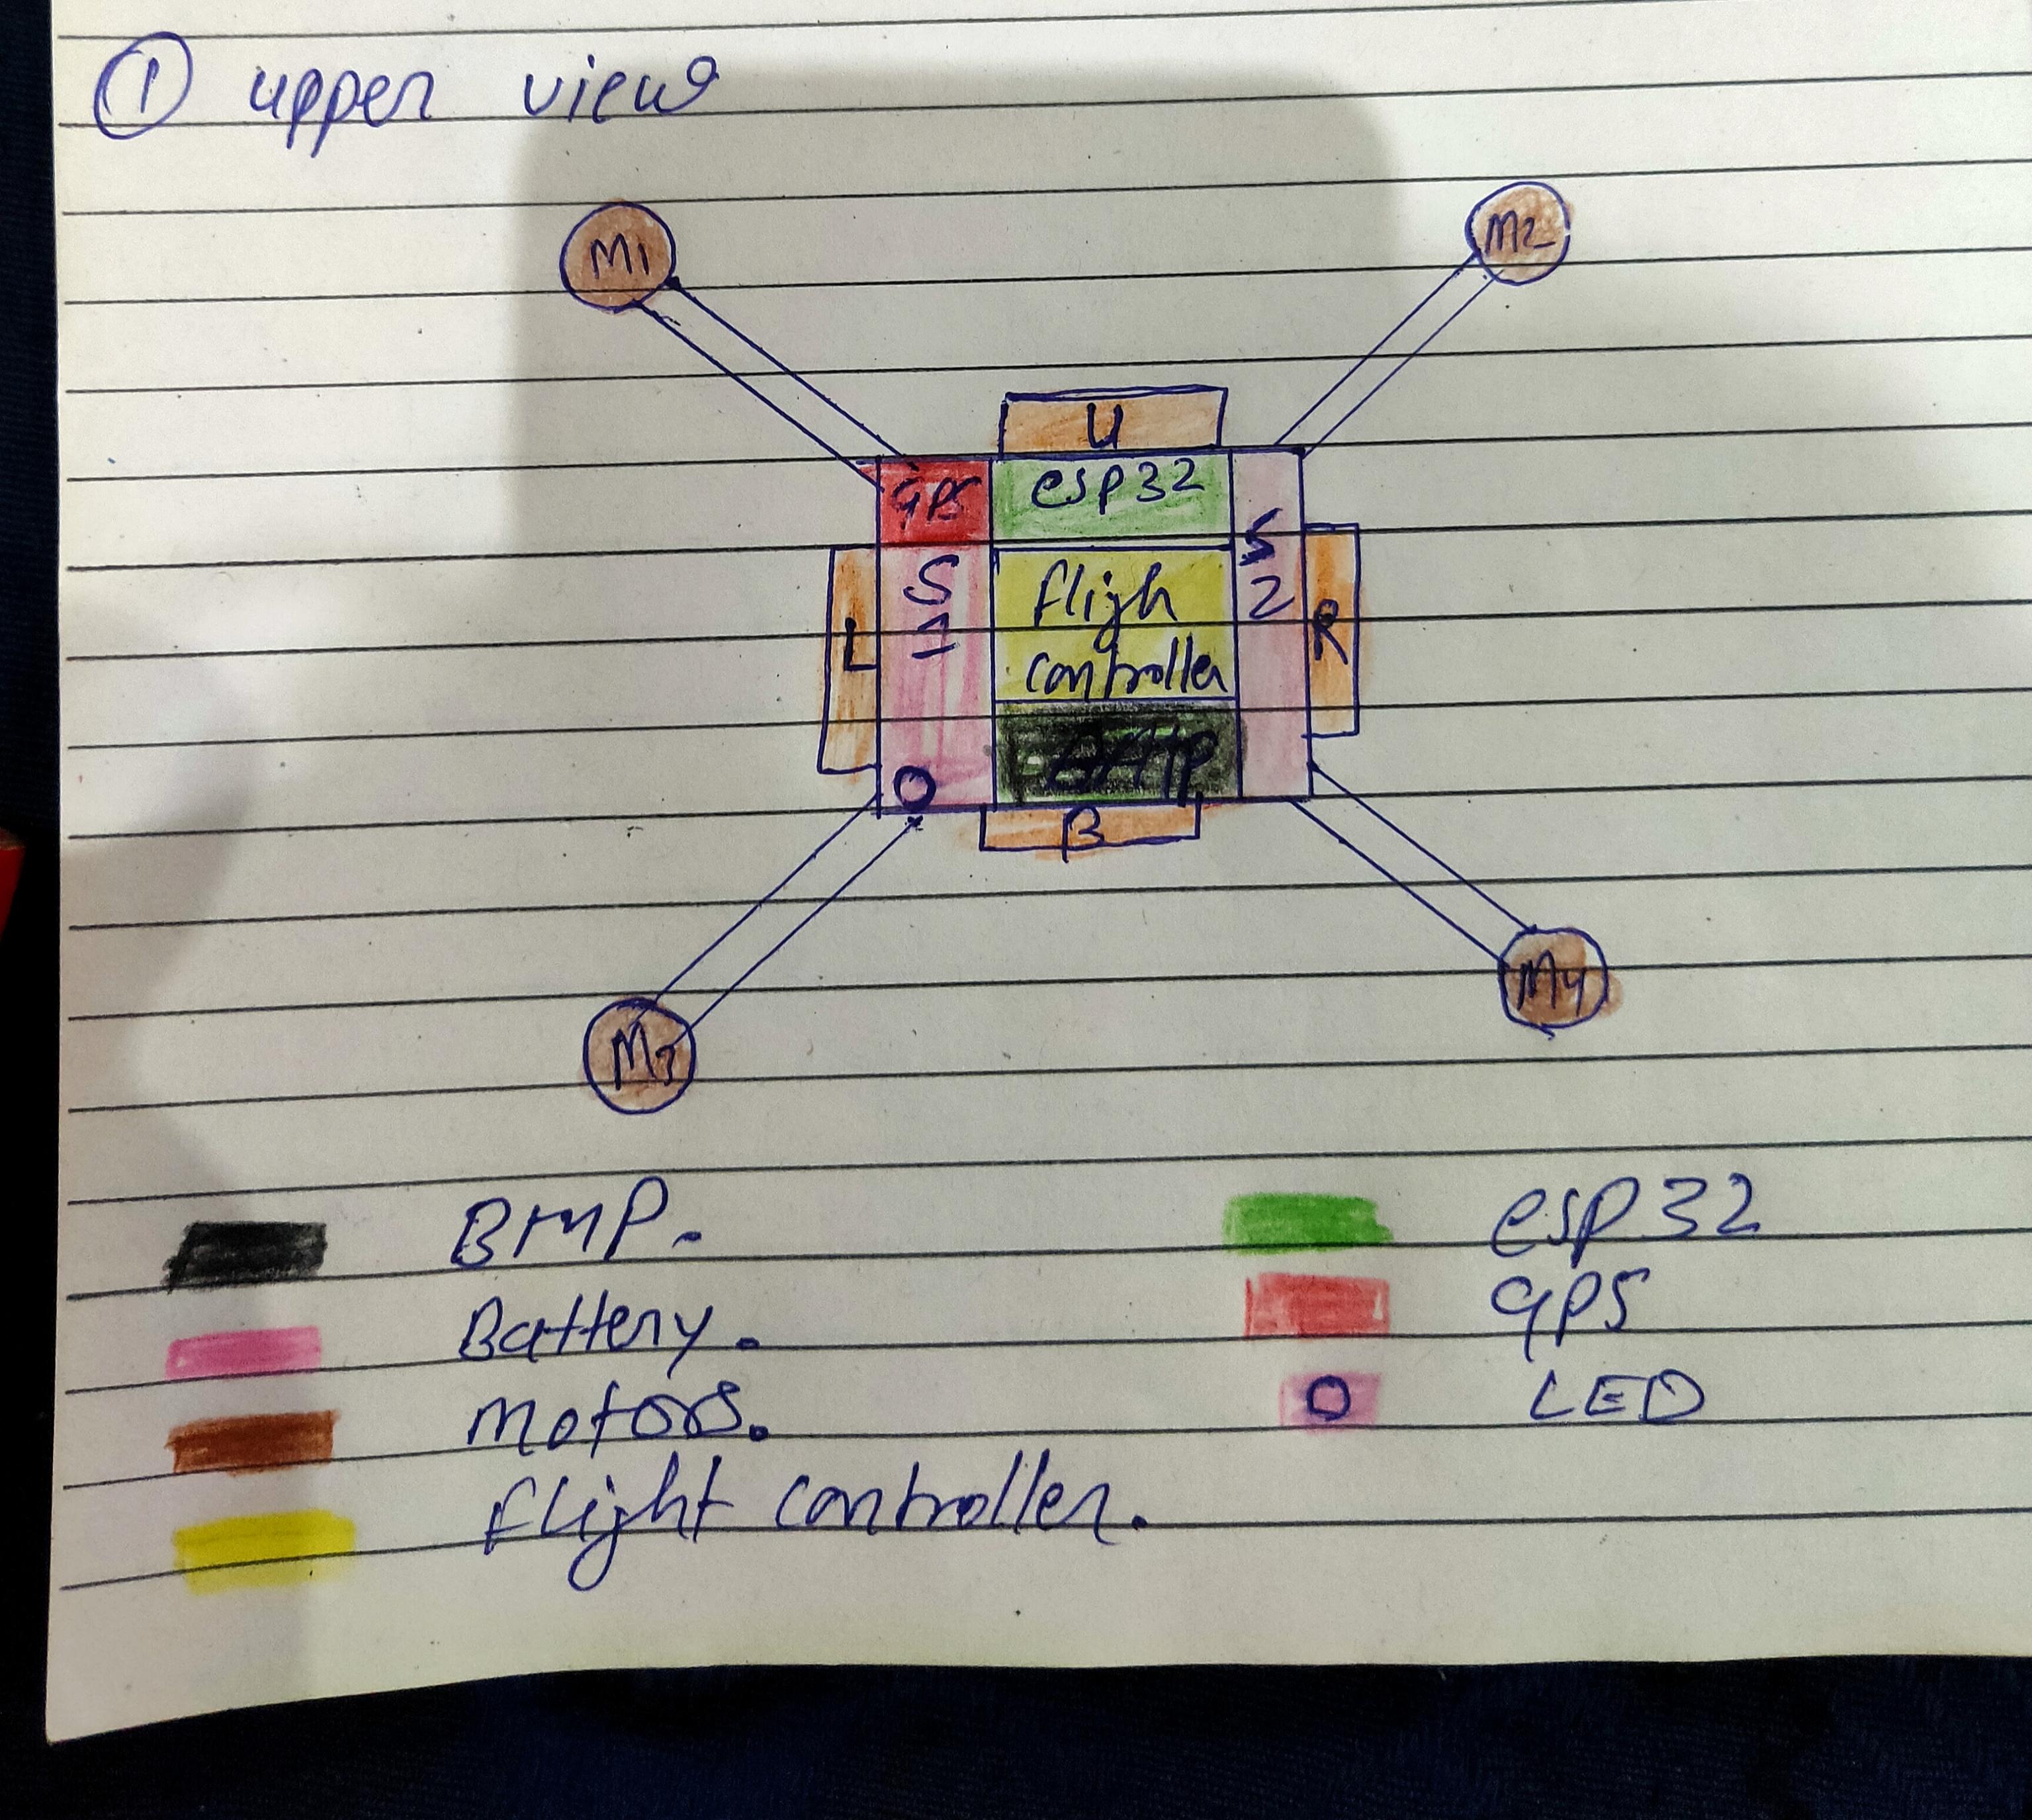 ① upper view
M1
M2
U
GPS
esp32
S1
S2
fligh
controller
L
R
BMP
B
M3
M4
BMP.
esp32
Battery.
GPS
Motors.
LED
flight controller.